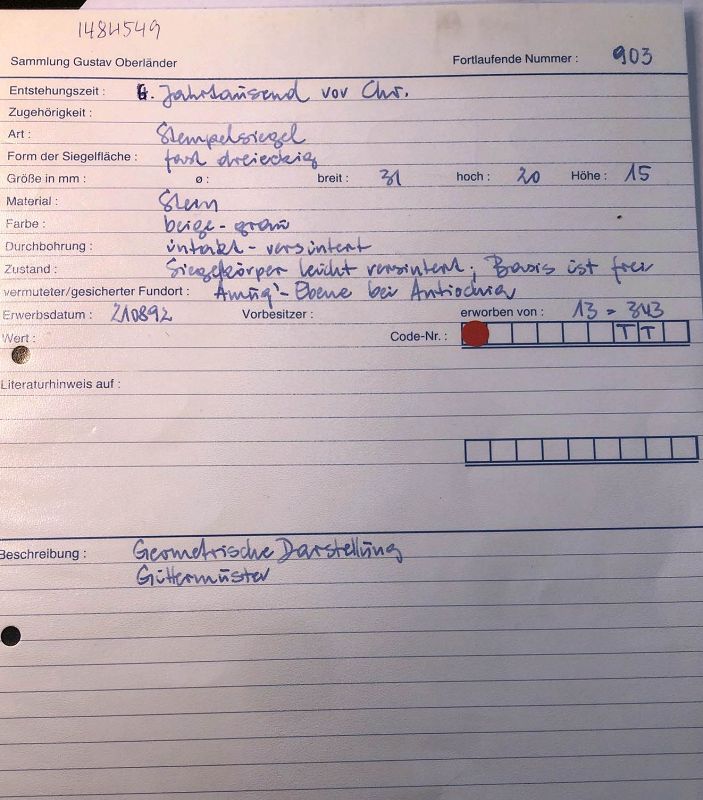 1484549
Sammlung Gustav Oberländer Fortlaufende Nummer : 903
Entstehungszeit : 4. Jahrtausend vor Chr.
Zugehörigkeit :
Art : Stempelsiegel
Form der Siegelfläche : fast dreieckig
Größe in mm : ø : breit : 31 hoch : 20 Höhe : 15
Material : Stein
Farbe : beige-grau
Durchbohrung : intakt - versintert
Zustand : Siegelkörper leicht versintert; Basis ist frei
vermuteter/gesicherter Fundort : Amuq'-Ebene bei Antiochia
Erwerbsdatum : 210892 Vorbesitzer : erworben von : 13 = 343
Wert : Code-Nr. : T T
Literaturhinweis auf :
Beschreibung : Geometrische Darstellung
Gittermuster